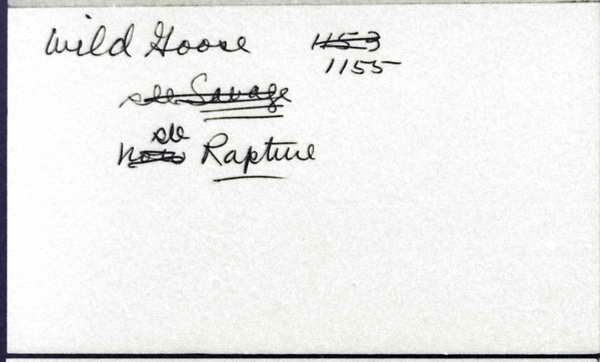 Wild Goose 1153
1155
see Savage
see
now Rapture